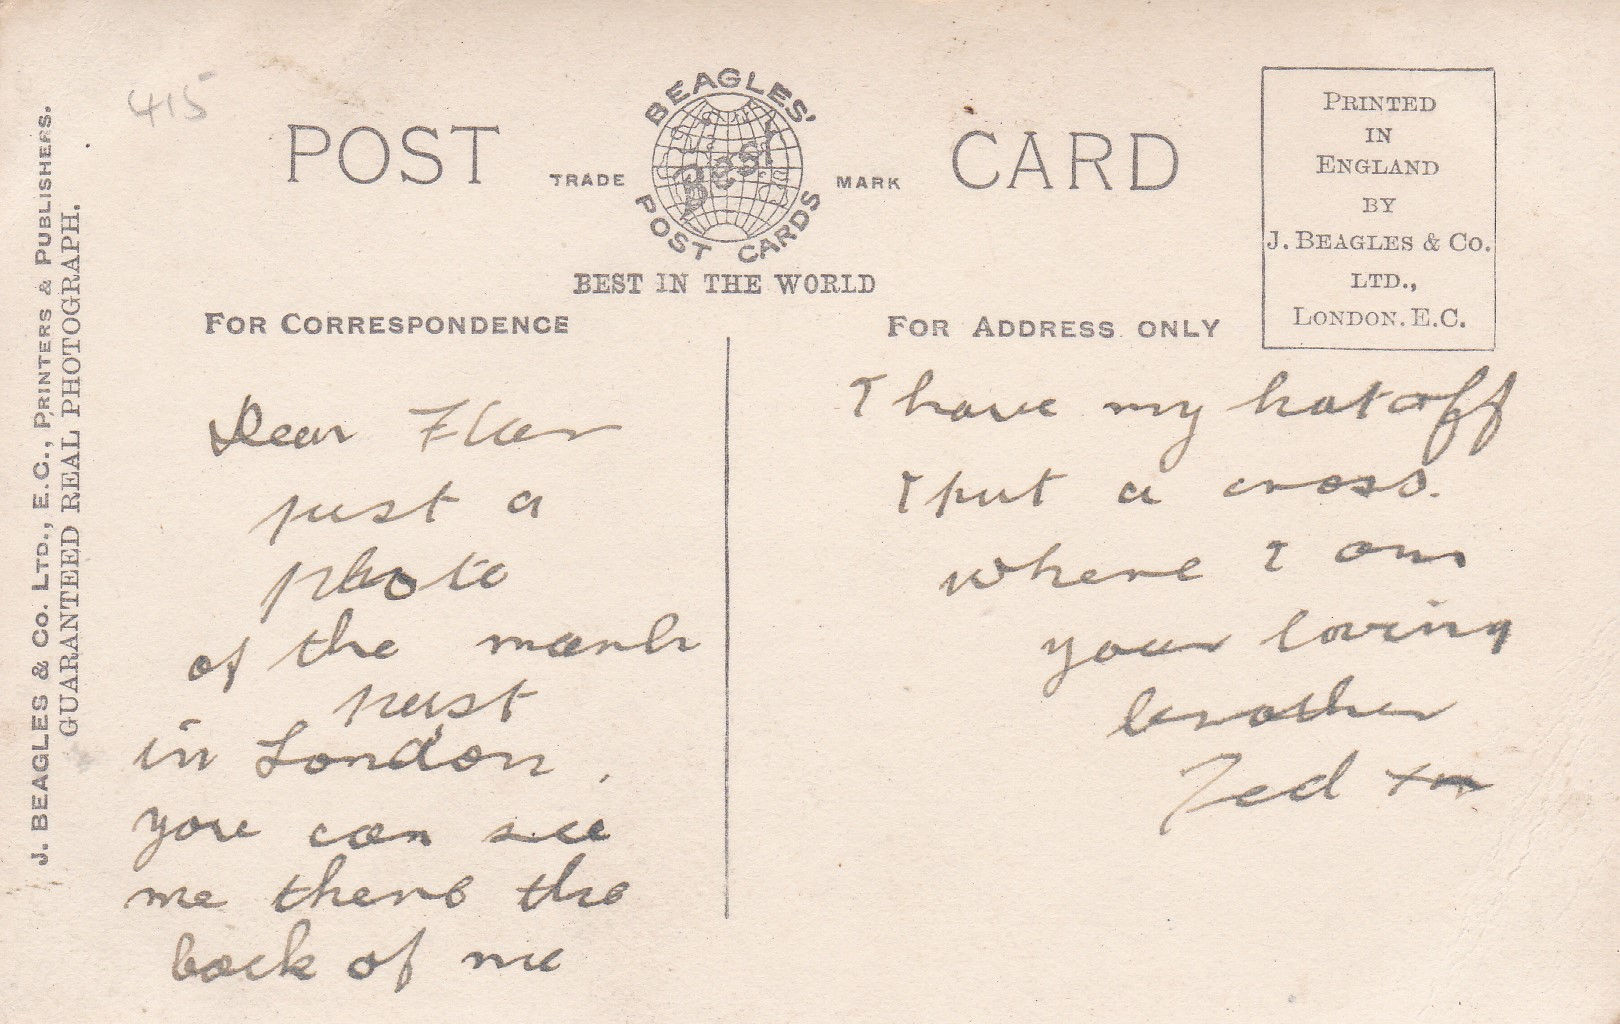 415
POST CARD
BEAGLES'
Best
POST CARDS
TRADE MARK
BEST IN THE WORLD
PRINTED
IN
ENGLAND
BY
J. BEAGLES & CO.
LTD.,
LONDON. E.C.
J. BEAGLES & CO. LTD., E.C., PRINTERS & PUBLISHERS.
GUARANTEED REAL PHOTOGRAPH.
FOR CORRESPONDENCE
Dear Flor
just a
photo
of the march
past
in London.
you can see
me there the
back of me
FOR ADDRESS ONLY
I have my hat off
I put a cross.
where I am
your loving
brother
Ted